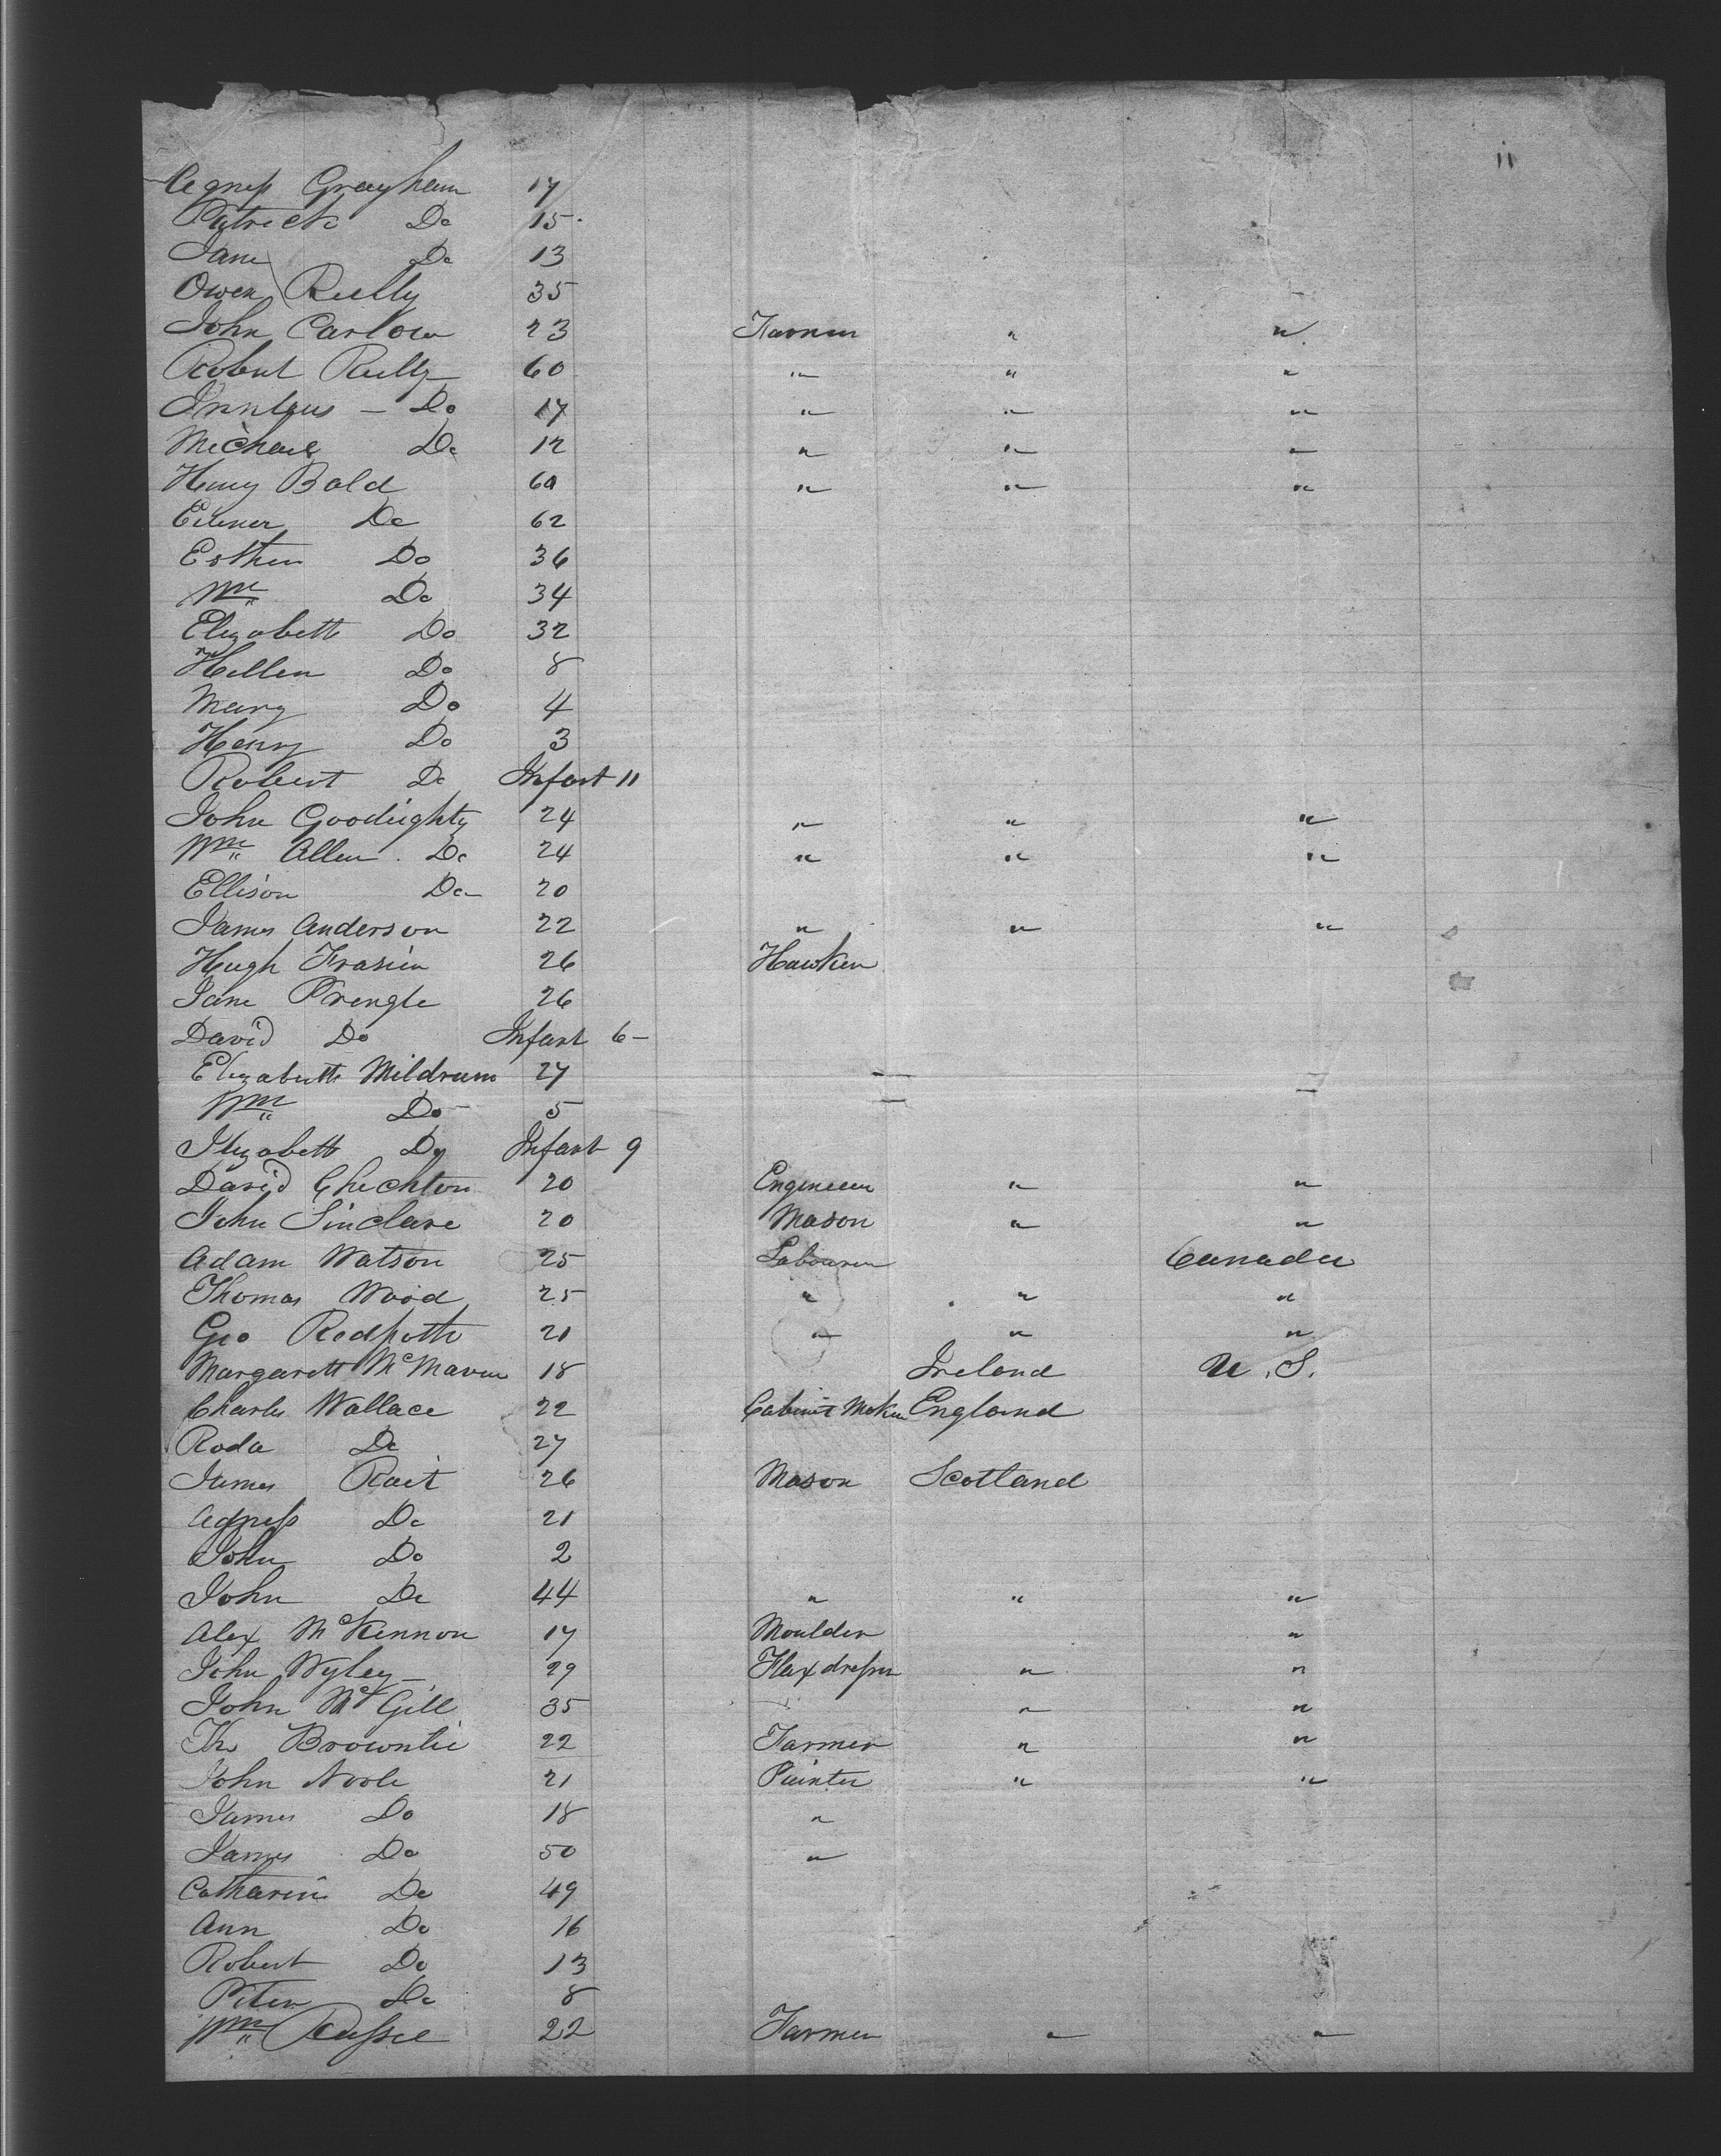 "
Agness Grayham 17
Patrick Do 15
Jane Do 13
Owen Reilly 35
John Carlow 23 Farmer " "
Robert Reilly 60 " " "
Do 17 " " "
Michael Do 12 " " "
Henry Bald 60 " " "
Do 62
Esther Do 36
Wm Do 34
Elizabeth Do 32
Hellen Do 8
Mary Do 4
Henry Do 3
Robert Do Infant 11
John 24 " " "
Wm Allen Do 24 " " "
Ellison Do 20
James Anderson 22 " " "
Hugh Frasier 26 Hawker
Jane Prengle 26
David Do Infant 6 –
Elizabeth Mildrum 27 —
Wm Do 5 — —
Elizabeth Do Infant 9
David 20 Engineer " "
John Sinclare 20 Mason " "
Adam Watson 25 Labourer " Canada
Thomas Wood 25 " " "
Geo Redpath 21 " " "
Margarett 18 Ireland U.S.
Charles Wallace 22 Cabinet Maker England
Roda Do 27
James Rait 26 Mason Scotland
Agness Do 21
John Do 2
John Do 44 " " "
Alex McKennon 17 Moulder "
John Wyley 29 Flax dresser " "
John McGill 35 " "
Brownlie 22 Farmer " "
John 21 Painter " "
James Do 18 "
James Do 50 "
Catharine Do 49
Ann Do 16
Robert Do 13
Peter Do 8
Wm 22 Farmer " "